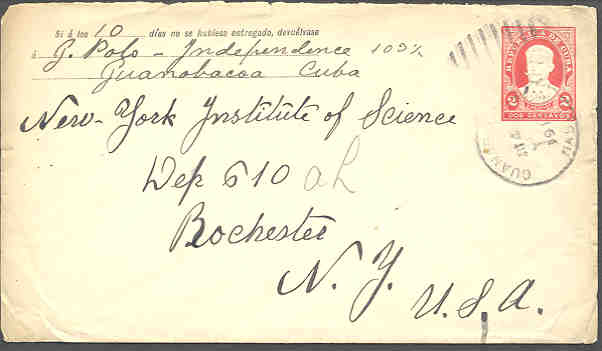 Si á los 10 días no se hubiese entregado, devuélvase
á G. Polo - Independence 103½
Guanabacoa Cuba
REPUBLICA DE CUBA
2 2
DOS CENTAVOS
New-York Institute of Science
Dep 610
Rochester
N. Y.
U.S.A.